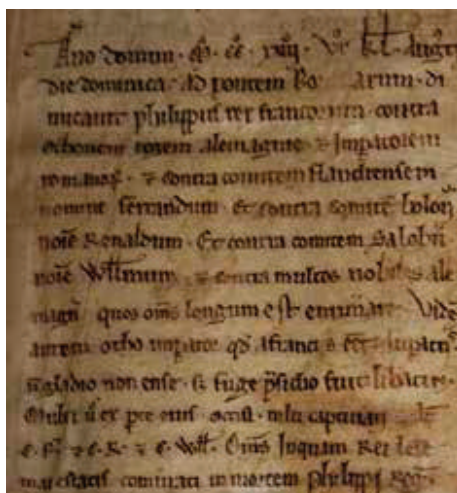 Año domini · M° · cc° · xiiij · VI° kl · Augti
die dominica · Ad pontem Bo arum · di
micauit philippus rex francorum contra
othonem regem alemagnie · ⁊ Imperatorem
romanoꝝ · ⁊ contra comitem flandrensem
nomine ferrandum · Et contra comitē bolon̄
noīe Renaldum · Et contra comitem Salobr̄
noīe Willmum · ⁊ contra multos nobiles ale
magn̄ quos om̄s longum est enumerare · Viden̄
autem otho qd̄ a francis eēt
n̄ gladio non ense · s; fuge p̄sidio fuit
Multi u̓ ex pte eius · occisi · mlti captiuati
c · F · ⁊ c · R · ⁊ c · Will · Om̄s Inquam Rei lese
maiestatis cominati in mortem philippi Reg